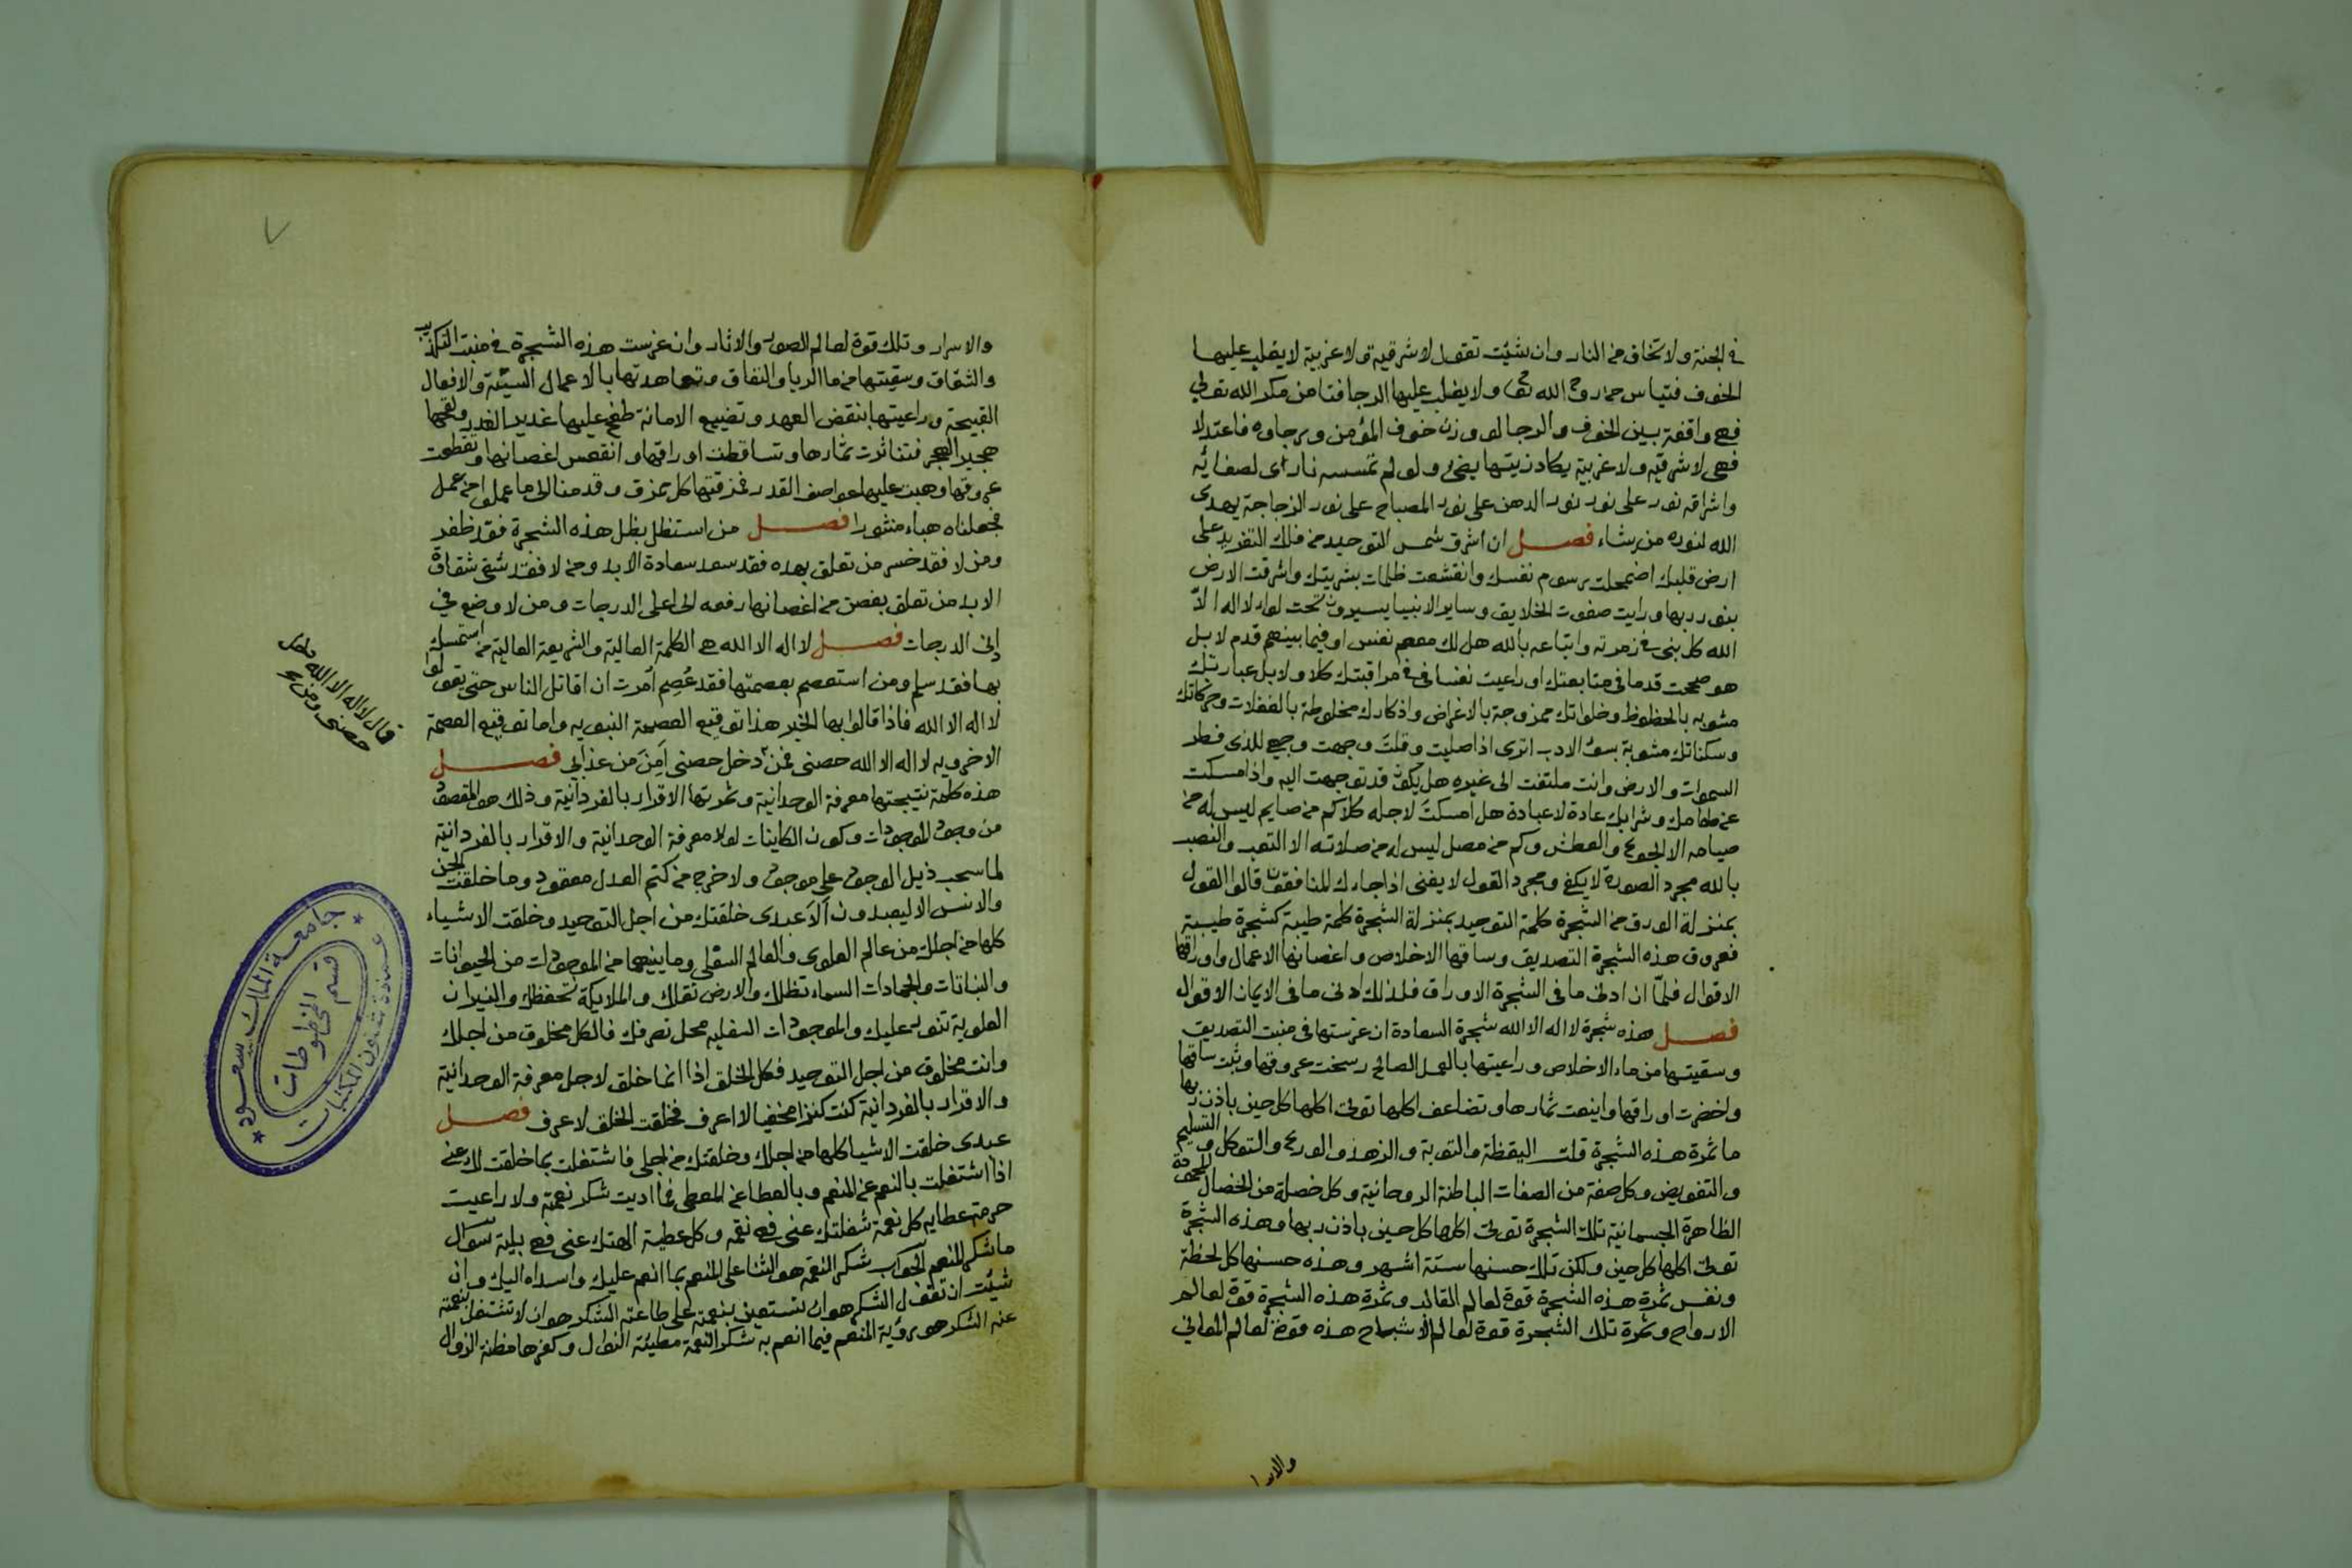 في الجنة ولا تخاف من النار وان شيئت تقول لا شرقية ولا غربية لا يغلب عليها
الخوف فتياس من روح الله تعا ولا يغلب عليها الرجا فتامن مكر الله تعالي
فهي واقفة بين الخوف والرجا لو وزن خوف المؤمن ورجاوه فاعتدلا
فهي لا شرقيه ولا غربية يكاد زيتها يضئ ولو لم تمسسه نار اى لصفائه
واشراقه نور على نور نور الدهن على نور المصباح على نور الزجاجة يهدى
الله لنوره من يشاء فصل ان اشرق شمس التوحيد من فلك التفريد على
ارض قلبك اضمحلت رسوم نفسك وانقشعت ظلمات بشريتك واشرقت الارض
بنور ربها ورايت صفوت الخلايق وساير الانبيا يسيرون تحت لواء لا اله الا
الله كل نبى في زمرته واتباعه بالله هل لك معهم نفس او فيما بينهم قدم لا بل
هو صححت قدما في متابعتك او راعيت نفسا في مراقبتك كلا ولا بل عبارتك
مشوبه بالحظوظ وخلواتك ممزوجة بالاغراض واذكارك مخلوطة بالغفلات وحركاتك
وسكناتك مشوبة بسوء الادب اترى اذا صليت وقلت وجهت وجهي للذى فطر
السموات والارض وانت ملتفت الى غيره هل يكون قد توجهت اليه واذا امسكت
عن طعامك وشرابك عادة لا عبادة هل امسكت لاجله كلا كم من صايم ليس له من
صيامه الا الجوع والعطش وكم من مصل ليس له من صلاته الا التعب والنصب
بالله مجرد الصورة لا يكفي ومجرد القول لا يغنى اذا جاءك المنافقون قالوا القول
بمنزلة الورق من الشجرة كلمة التوحيد بمنزلة الشجرة كلمة طيبة كشجرة طيبة
فعروق هذه الشجرة التصديق وساقها الاخلاص واغصانها الاعمال واوراقها
الاقوال فلما ان ادنى ما فى الشجرة الاوراق فلذلك ادنى ما فى الايمان الاقوال
فصل هذه شجرة لا اله الا الله شجرة السعادة ان غرستها في منبت التصديق
وسقيتها من ماء الاخلاص وراعيتها بالعمل الصالح رسخت عروقها وثبت ساقها
واخضرت اوراقها واينعت ثمارها وتضاعف اكلها تؤتى اكلها كل حين باذن ربها
ما ثمرة هذه الشجرة قلت اليقظة والتوبة والزهد والورع والتوكل والتسليم
والتفويض وكل صفة من الصفات الباطنة الروحانية وكل خصلة من الخصال المحمودة
الظاهرة الجسمانية تلك الشجرة تؤتى اكلها كل حين باذن ربها وهذه الشجرة
تؤتى اكلها كل حين ولكن تلك حسنها ستة اشهر وهذه حسنها كل لحظة
ونفس ثمرة هذه الشجرة قوة لعالم القالب وثمرة هذه الشجرة قوة لعالم
الارواح وثمرة تلك الشجرة قوة لعالم الاشباح هذه قوة لعالم المعاني
والاسرا
٧
والاسرار وتلك قوة لعالم الصور والاثار وان غرست هذه الشجرة في منبت التكذيب
والشقاق وسقيتها من ما الريا والنفاق وتعاهدتها بالاعمال السيئة والافعال
القبيحة وراعيتها بنقض العهد وتضييع الامانة طفح عليها غدير الغدر ولفحها
هجير الهجر فتناثرت ثمارها وتساقطت اوراقها وانقصر اغصانها وتقطعت
عروقها وهبت عليها عواصف القدر فمزقتها كل ممزق وقدمنا الى ما عملوا من عمل
فجعلناه هباء منثورا فصل من استظل بظل هذه الشجرة فقد ظفر
ومن لا فقد خسر من تعلق بهده فقد سعد سعادة الابد ومن لا فقد شقى شقاوة
الابد من تعلق بغصن من اغصانها رفعه الى اعلى الدرجات ومن لا وضع في
ادنى الدرجات فصل لا اله الا الله هي الكلمة العالية والشريعة الغالية من استمسك
بها فقد سلم ومن استعصم بعصمتها فقد عصم امرت ان اقاتل الناس حتى يقولوا
لا اله الا الله فاذا قالوا بها الخبر هذا توقيع العصمة النبويه واما توقيع العصمة
الاخرويه لا اله الا الله حصنى فمن دخل حصنى امن من عذابي فصل
هذه كلمة نتيجتها معرفة الوحدانية وثمرتها الاقرار بالفردانية وذلك هو المقصود
من وجود الموجودات وكون الكاينات لولا معرفة الوحدانية والاقرار بالفردانية
لما سحب ذيل الوجود على موجود ولا خرج من كتم العدل مفقود وما خلقت الجن
والانس الا ليعبدون الا عبدى خلقتك من اجل التوحيد وخلقت الاشياء
كلها من اجلك من عالم العلوى والعالم السفلى وما بينهما من الموجودات من الحيوانات
والنباتات والجمادات السماء تظلك والارض تقلك والملايكة تحفظك والنيران
العلوية تنور عليك والموجودات السفليه محل تصرفك فالكل مخلوق من اجلك
وانت مخلوق من اجل التوحيد فكل الخلق اذا انما خلق لاجل معرفة الوحدانية
والاقرار بالفردانية كنت كنزا مخفيا لا اعرف فخلقت الخلق لاعرف فصل
عبدى خلقت الاشيا كلها من اجلك وخلقتك من اجلى فاشتغلت بما خلقت لك عنى
اذا اشتغلت بالنعم عن المنعم وبالعطا عن المعطى فما اديت شكر نعمته ولا راعيت
حرمة عطايه كل نعمة شغلتك عنى فهي نقمه وكل عطية الهتك عنى فهي بلية سؤال
ما شكر المنعم الجواب شكر النعمة هو الثنا على المنعم بما انعم عليك واسداه اليك وان
شيئت ان تقول الشكر هو ان تستعين بنعمته على طاعته الشكر هو ان لا تشتغل بنعمته
عنه الشكر هو رؤية المنعم فيما انعم به شكر النعمة مطيئة النوال وكفرها مظنة الزوال
قال لا اله الا الله
حصنى ومن
جامعة الملك سعود
عمادة شئون المكتبات
قسم المخطوطات